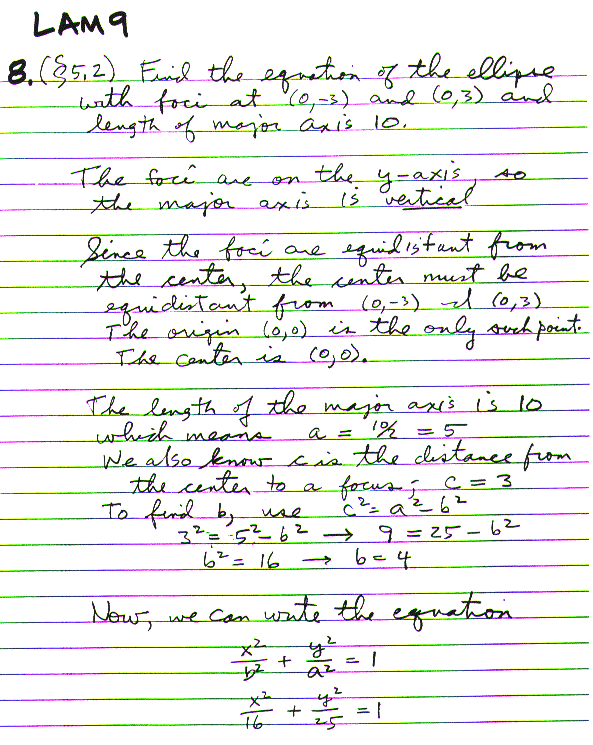 LAM 9
8. (§5.2) Find the equation of the ellipse
with foci at (0,-3) and (0,3) and
length of major axis 10.
The foci are on the y-axis, so
the major axis is vertical
Since the foci are equidistant from
the center, the center must be
equidistant from (0,-3) and (0,3)
The origin (0,0) is the only such point.
The center is (0,0).
The length of the major axis is 10
which means a = 10/2 = 5
We also know c is the distance from
the center to a focus; c = 3
To find b, use c² = a² - b²
3² = 5² - b² → 9 = 25 - b²
b² = 16 → b = 4
Now, we can write the equation
x²/b² + y²/a² = 1
x²/16 + y²/25 = 1